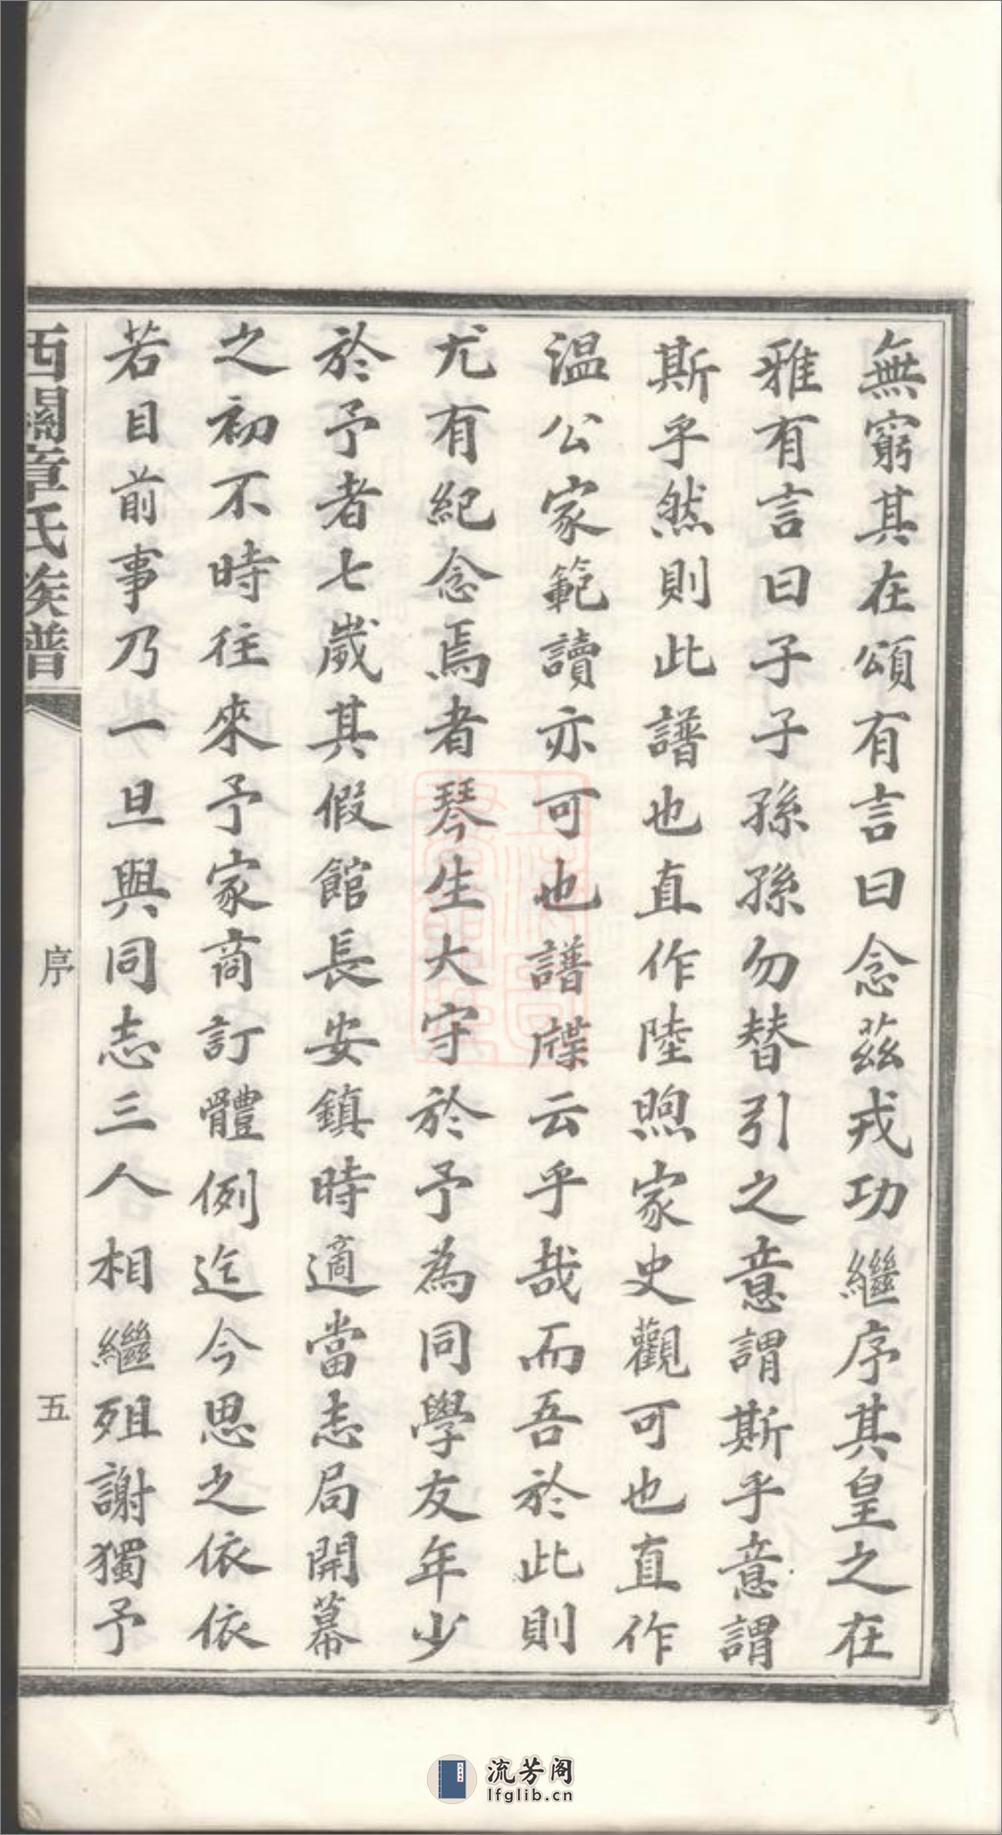 無窮其在頌有言曰念茲戎功繼序其皇之在
雅有言曰子子孫孫勿替引之意謂斯乎意謂
斯乎然則此譜也直作陸煦家史觀可也直作
溫公家範讀亦可也譜牒云乎哉而吾於此則
尤有紀念焉者琴生大守於予為同學友年少
於予者七歲其假館長安鎮時適當志局開幕
之初不時往來予家商訂體例迄今思之依依
若目前事乃一旦與同志三人相繼殂謝獨予
西關章氏族譜
序
五
流芳阁
lfglib.cn